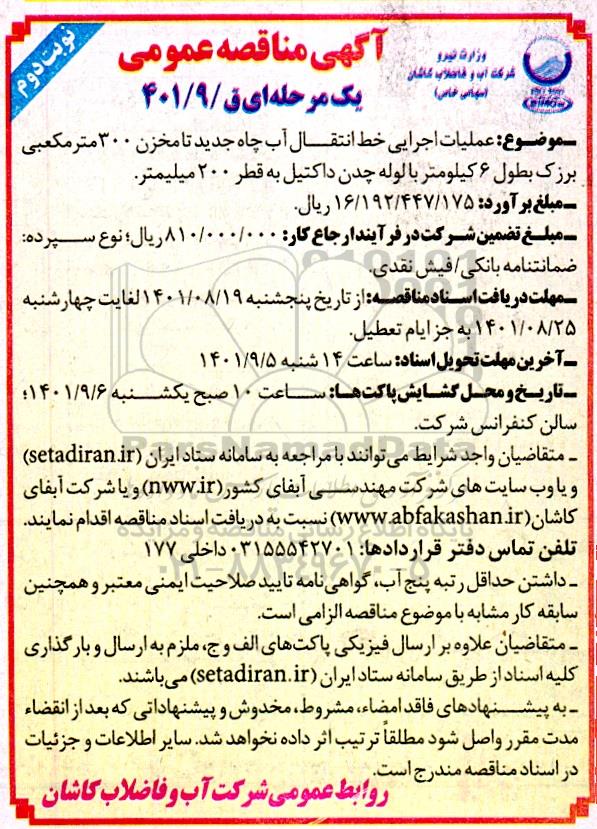 نوبت دوم
وزارت نیرو
شرکت آب و فاضلاب کاشان
(سهامی خاص)
آگهی مناقصه عمومی
یک مرحله‌ای ق/۴۰۱/۹
ـ موضوع: عملیات اجرایی خط انتقال آب چاه جدید تا مخزن ۳۰۰ مترمکعبی
برزک بطول ۶ کیلومتر با لوله چدن داکتیل به قطر ۲۰۰ میلیمتر.
ـ مبلغ برآورد: ۱۶/۱۹۲/۴۴۷/۱۷۵ ریال.
ـ مبلغ تضمین شرکت در فرآیند ارجاع کار: ۸۱۰/۰۰۰/۰۰۰ ریال؛ نوع سپرده:
ضمانتنامه بانکی/فیش نقدی.
ـ مهلت دریافت اسناد مناقصه: از تاریخ پنجشنبه ۱۴۰۱/۰۸/۱۹ لغایت چهارشنبه
۱۴۰۱/۰۸/۲۵ به جز ایام تعطیل.
ـ آخرین مهلت تحویل اسناد: ساعت ۱۴ شنبه ۱۴۰۱/۹/۵
ـ تاریخ و محل گشایش پاکت‌ها: ساعت ۱۰ صبح یکشنبه ۱۴۰۱/۹/۶؛
سالن کنفرانس شرکت.
ParsNamadData
ـ متقاضیان واجد شرایط می‌توانند با مراجعه به سامانه ستاد ایران (setadiran.ir)
و یا وب سایت های شرکت مهندسی آبفای کشور (nww.ir) و یا شرکت آبفای
کاشان (www.abfakashan.ir) نسبت به دریافت اسناد مناقصه اقدام نمایند.
پایگاه اطلاع رسانی مناقصه و مزایده
تلفن تماس دفتر قراردادها: ۰۳۱۵۵۵۴۲۷۰۱ داخلی ۱۷۷
۰۲۱-۸۸۳۴۹۶۷۰-۵
ـ داشتن حداقل رتبه پنج آب، گواهی نامه تایید صلاحیت ایمنی معتبر و همچنین
سابقه کار مشابه با موضوع مناقصه الزامی است.
ـ متقاضیان علاوه بر ارسال فیزیکی پاکت‌های الف و ج، ملزم به ارسال و بارگذاری
کلیه اسناد از طریق سامانه ستاد ایران (setadiran.ir) می‌باشند.
ـ به پیشنهادهای فاقد امضاء، مشروط، مخدوش و پیشنهاداتی که بعد از انقضاء
مدت مقرر واصل شود مطلقاً ترتیب اثر داده نخواهد شد. سایر اطلاعات و جزئیات
در اسناد مناقصه مندرج است.
روابط عمومی شرکت آب و فاضلاب کاشان